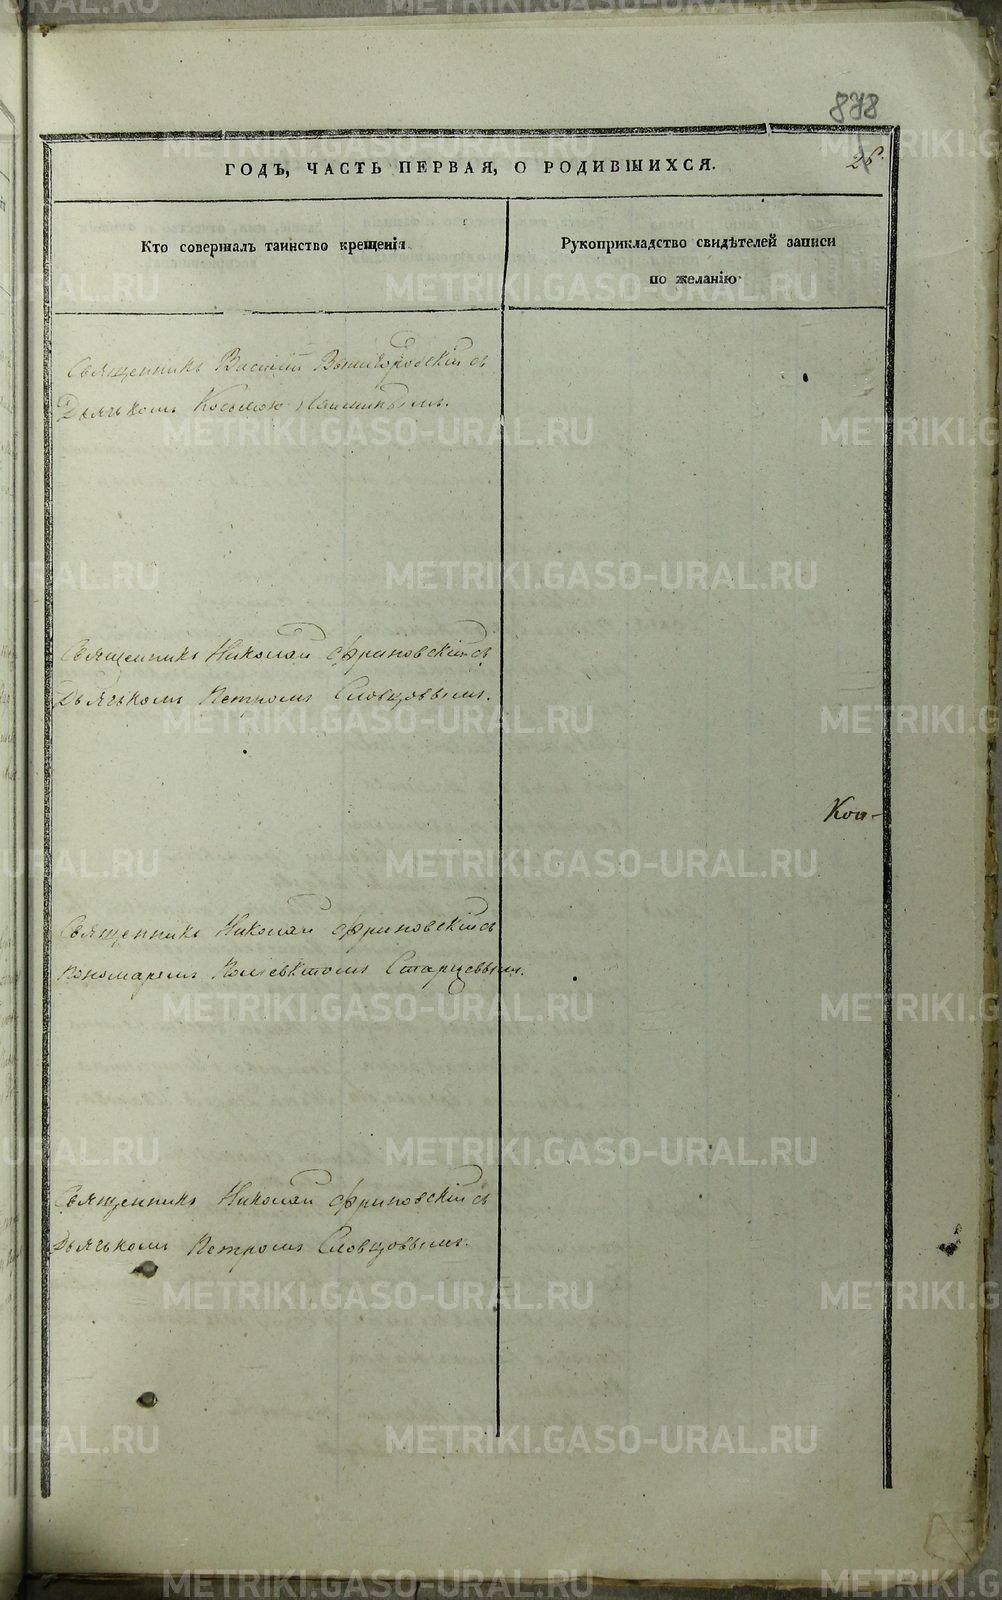 878
26.
ГОДЪ, ЧАСТЬ ПЕРВАЯ, О РОДИВШИХСЯ.
Кто совершалъ таинство крещенія
Рукоприкладство свидѣтелей записи
по желанію
Священникъ Василій съ
Дьячькомъ Косьмою
Священникъ Николай Фриновскій съ
Дьячькомъ Петромъ Словцовымъ.
Кон-
Священникъ Николай Фриновскій съ
пономаремъ Старцевымъ.
Священникъ Николай Фриновскій съ
Дьячькомъ Петромъ Словцовымъ.
METRIKI.GASO-URAL.RU